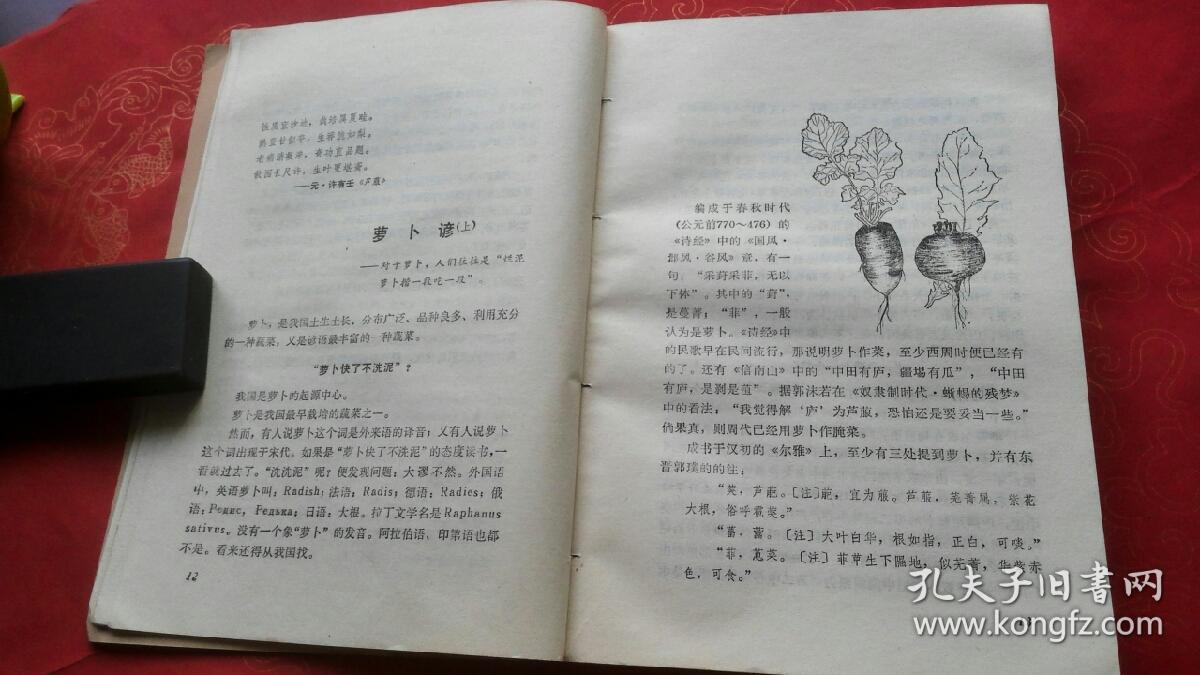 性质宜沙地，栽培属夏畦。
熟登甘似芋，生荐脆如梨。
老病消凝滞，奇功直品题。
故园长尺许，生叶更堪齑。
——元·许有壬《芦菔》
萝卜谚（上）
——对于萝卜，人们往往是“烘泥
萝卜揩一段吃一段”。
萝卜，是我国土生土长，分布广泛、品种良多、利用充分
的一种蔬菜，又是谚语最丰富的一种蔬菜。
“萝卜快了不洗泥”？
我国是萝卜的起源中心。
萝卜是我国最早栽培的蔬菜之一。
然而，有人说萝卜这个词是外来语的译音；又有人说萝卜
这个词出现于宋代。如果是“萝卜快了不洗泥”的态度读书，一
看就过去了。“洗洗泥”呢？便发现问题：大谬不然。外国语
中，英语萝卜叫：Radish；法语：Radis；德语：Radies；俄
语：Редис，Редька；日语：大根。拉丁文学名是Raphanus
sativus。没有一个象“萝卜”的发音。阿拉伯语、印第语也都
不是。看来还得从我国找。
12
编成于春秋时代
（公元前770～476）的
《诗经》中的《国风·
邶风·谷风》章，有一
句：“采葑采菲，无以
下体”。其中的“葑”，
是蔓菁；“菲”，一般
认为是萝卜。《诗经》中
的民歌早在民间流行，那说明萝卜作菜，至少西周时便已经有
的了。还有《信南山》中的“中田有庐，疆埸有瓜”，“中田
有庐，是剥是菹”。据郭沫若在《奴隶制时代·蜥蜴的残梦》
中的看法，“我觉得解‘庐’为芦菔，恐怕还是要妥当一些。”
倘果真，则周代已经用萝卜作腌菜。
成书于汉初的《尔雅》上，至少有三处提到萝卜，并有东
晋郭璞的的注：
“葖，芦萉。〔注〕萉，宜为菔。芦菔，芜菁属，紫花
大根，俗呼雹葖。”
“葍，䔰。〔注〕大叶白华，根如指，正白，可啖。”
“菲，蒠菜。〔注〕菲草生下隰地，似芜菁，华紫赤
色，可食。”
孔夫子旧书网
www.kongfz.com